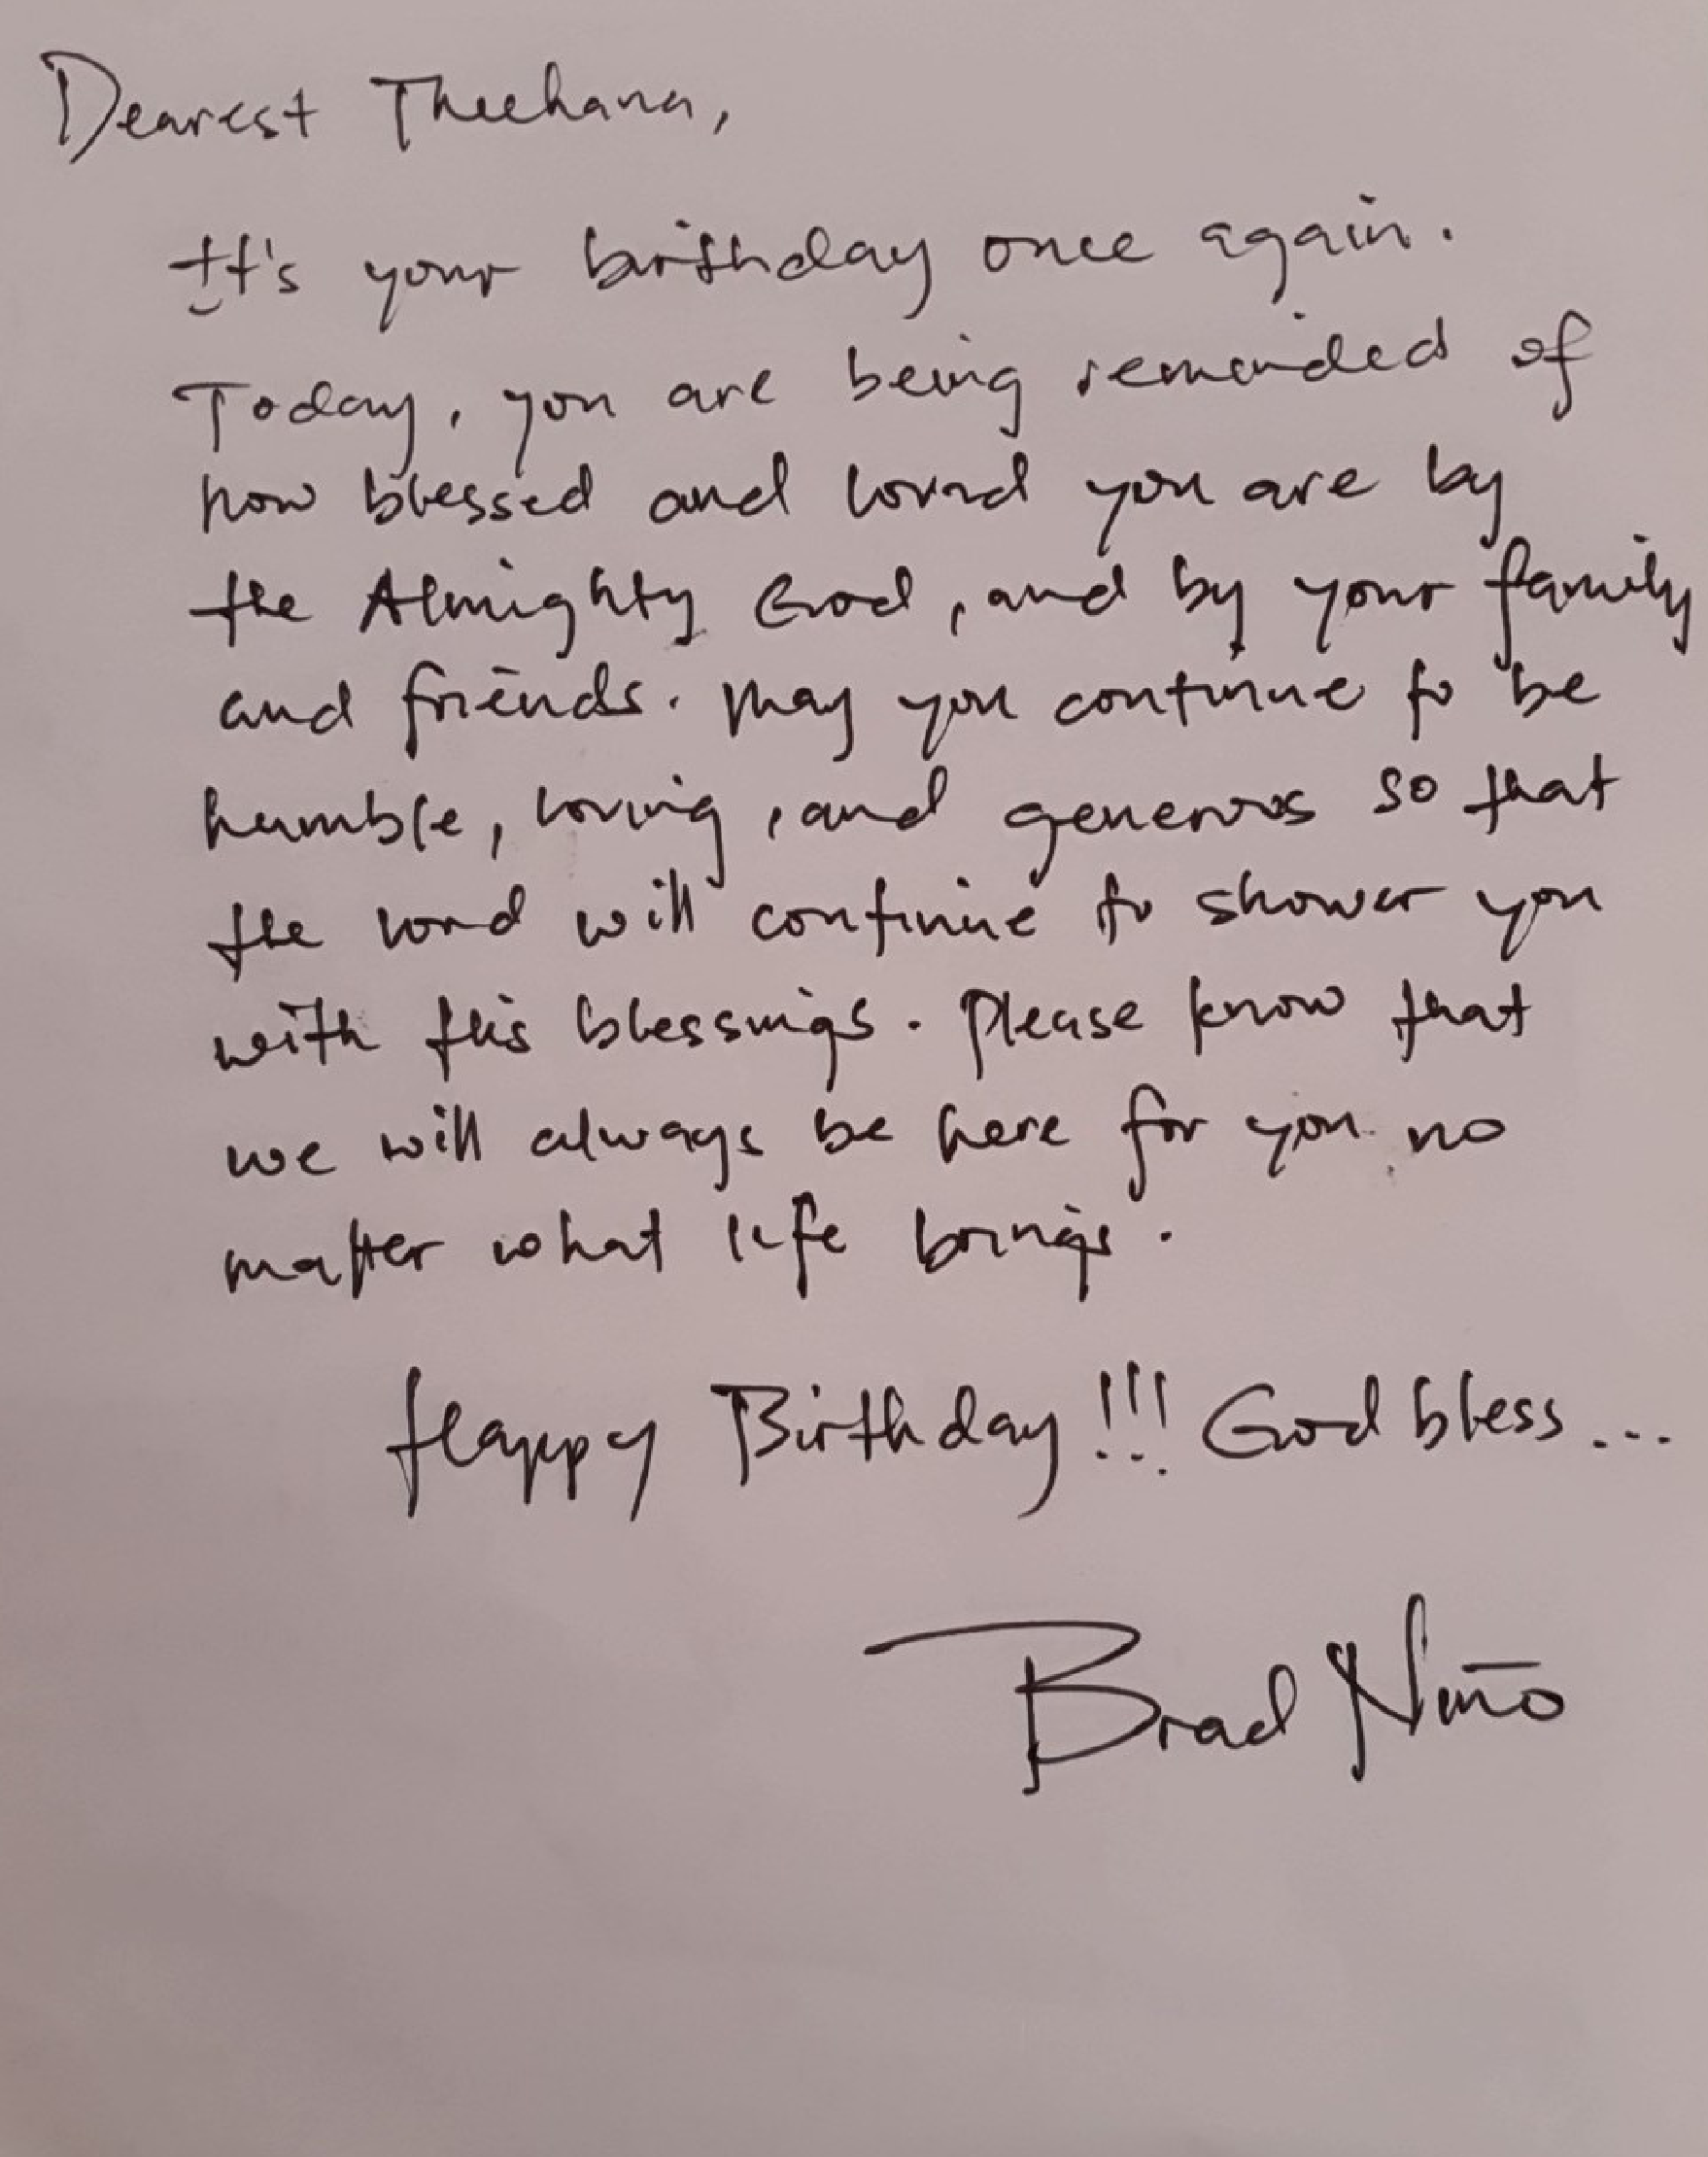 Dearest Theehana,
It's your birthday once again.
Today, you are being reminded of
how blessed and loved you are by
the Almighty God, and by your family
and friends. May you continue to be
humble, loving, and generous so that
the Lord will continue to shower you
with His blessings. Please know that
we will always be here for you no
matter what life brings.
Happy Birthday!!! God bless...
Brad Niño